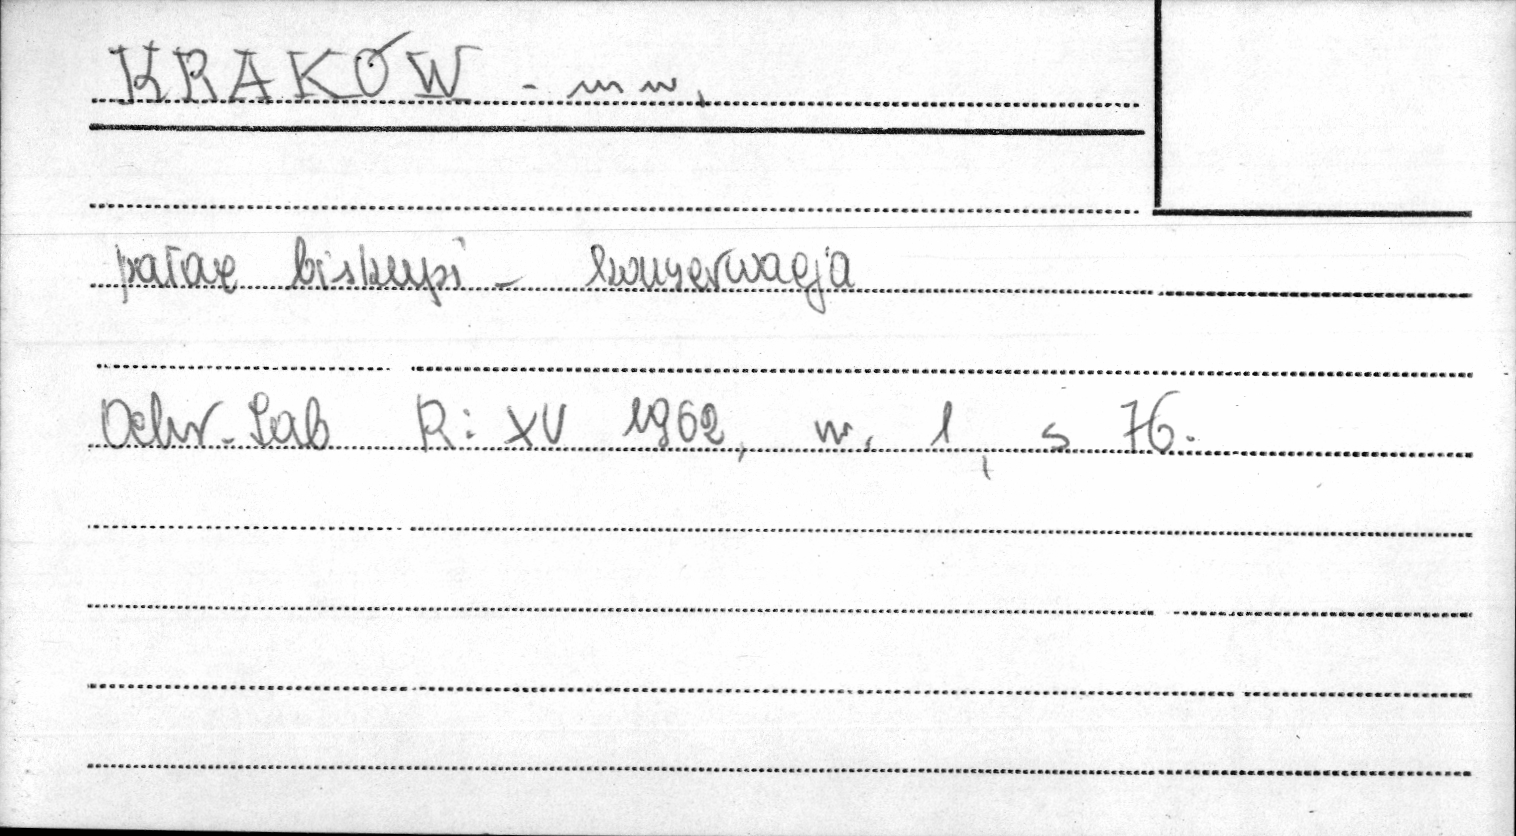 KRAKÓW - m w.
pałac biskupi - konserwacja
Ochr. Zab R: XV 1962, nr. 1, s 76.